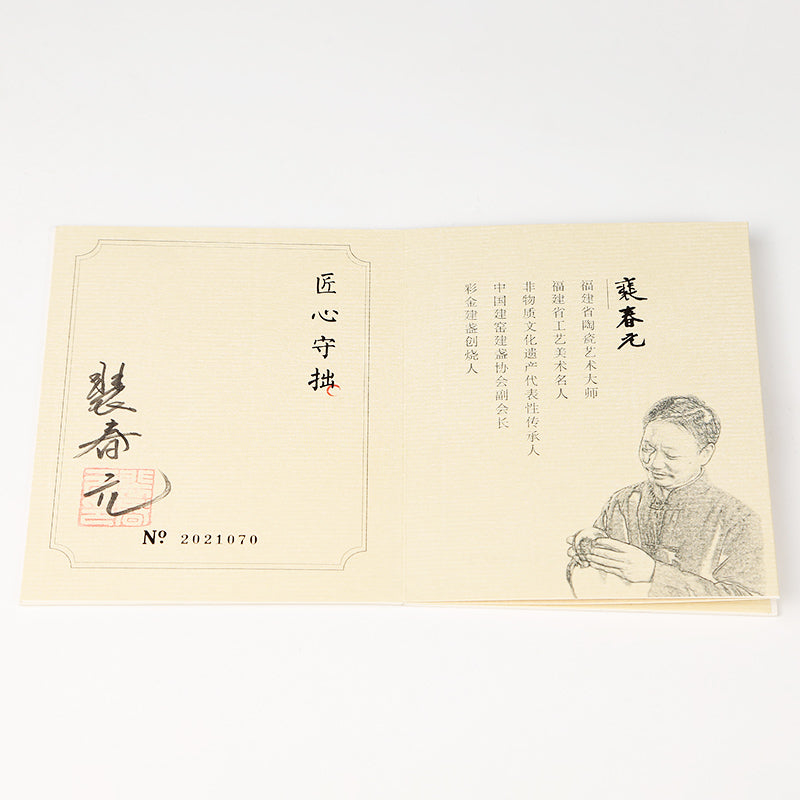 裴春元
福建省陶瓷艺术大师
福建省工艺美术名人
非物质文化遗产代表性传承人
中国建窑建盏协会副会长
彩金建盏创烧人
匠心守拙
裴春元
Nº 2021070